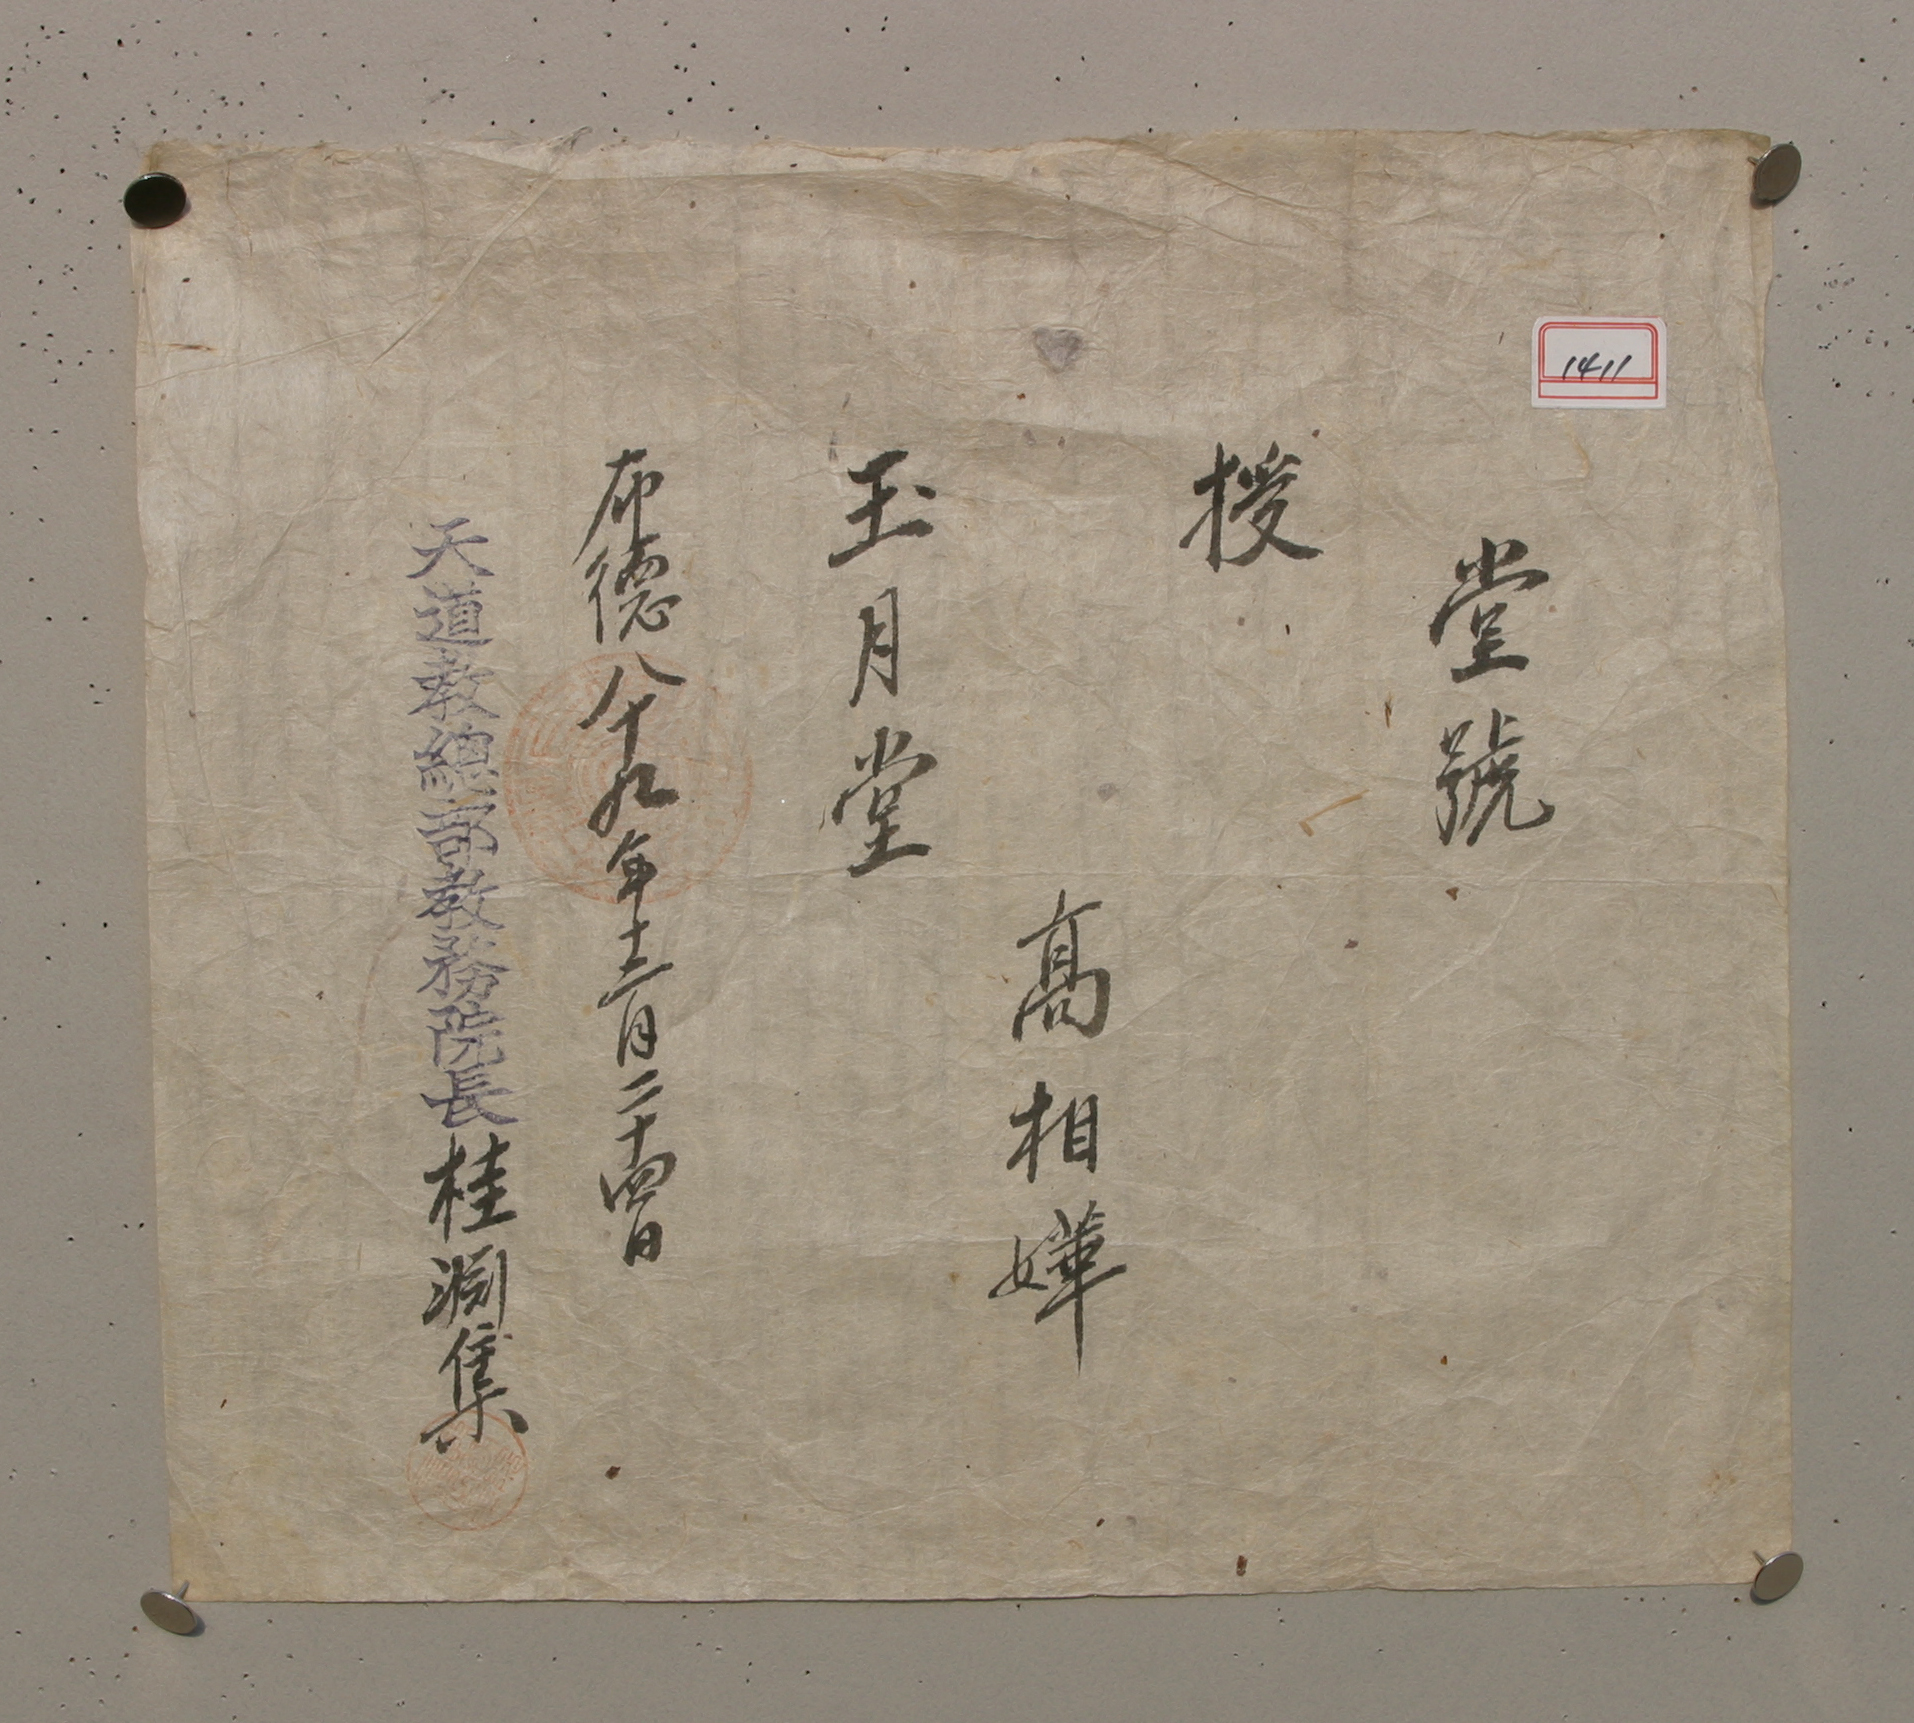 堂號
授
高相嬅
玉月堂
布德八十九年十二月二十四日
天道敎總部敎務院長桂淵集
1411